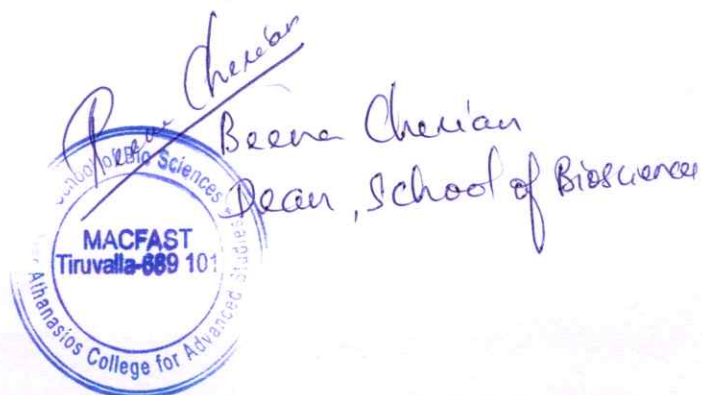 Beena Cherian
Beena Cherian
Dean, School of Biosciences
School of Bio Sciences
MACFAST
Tiruvalla-689 101
Athanasios College for Advanced Studies